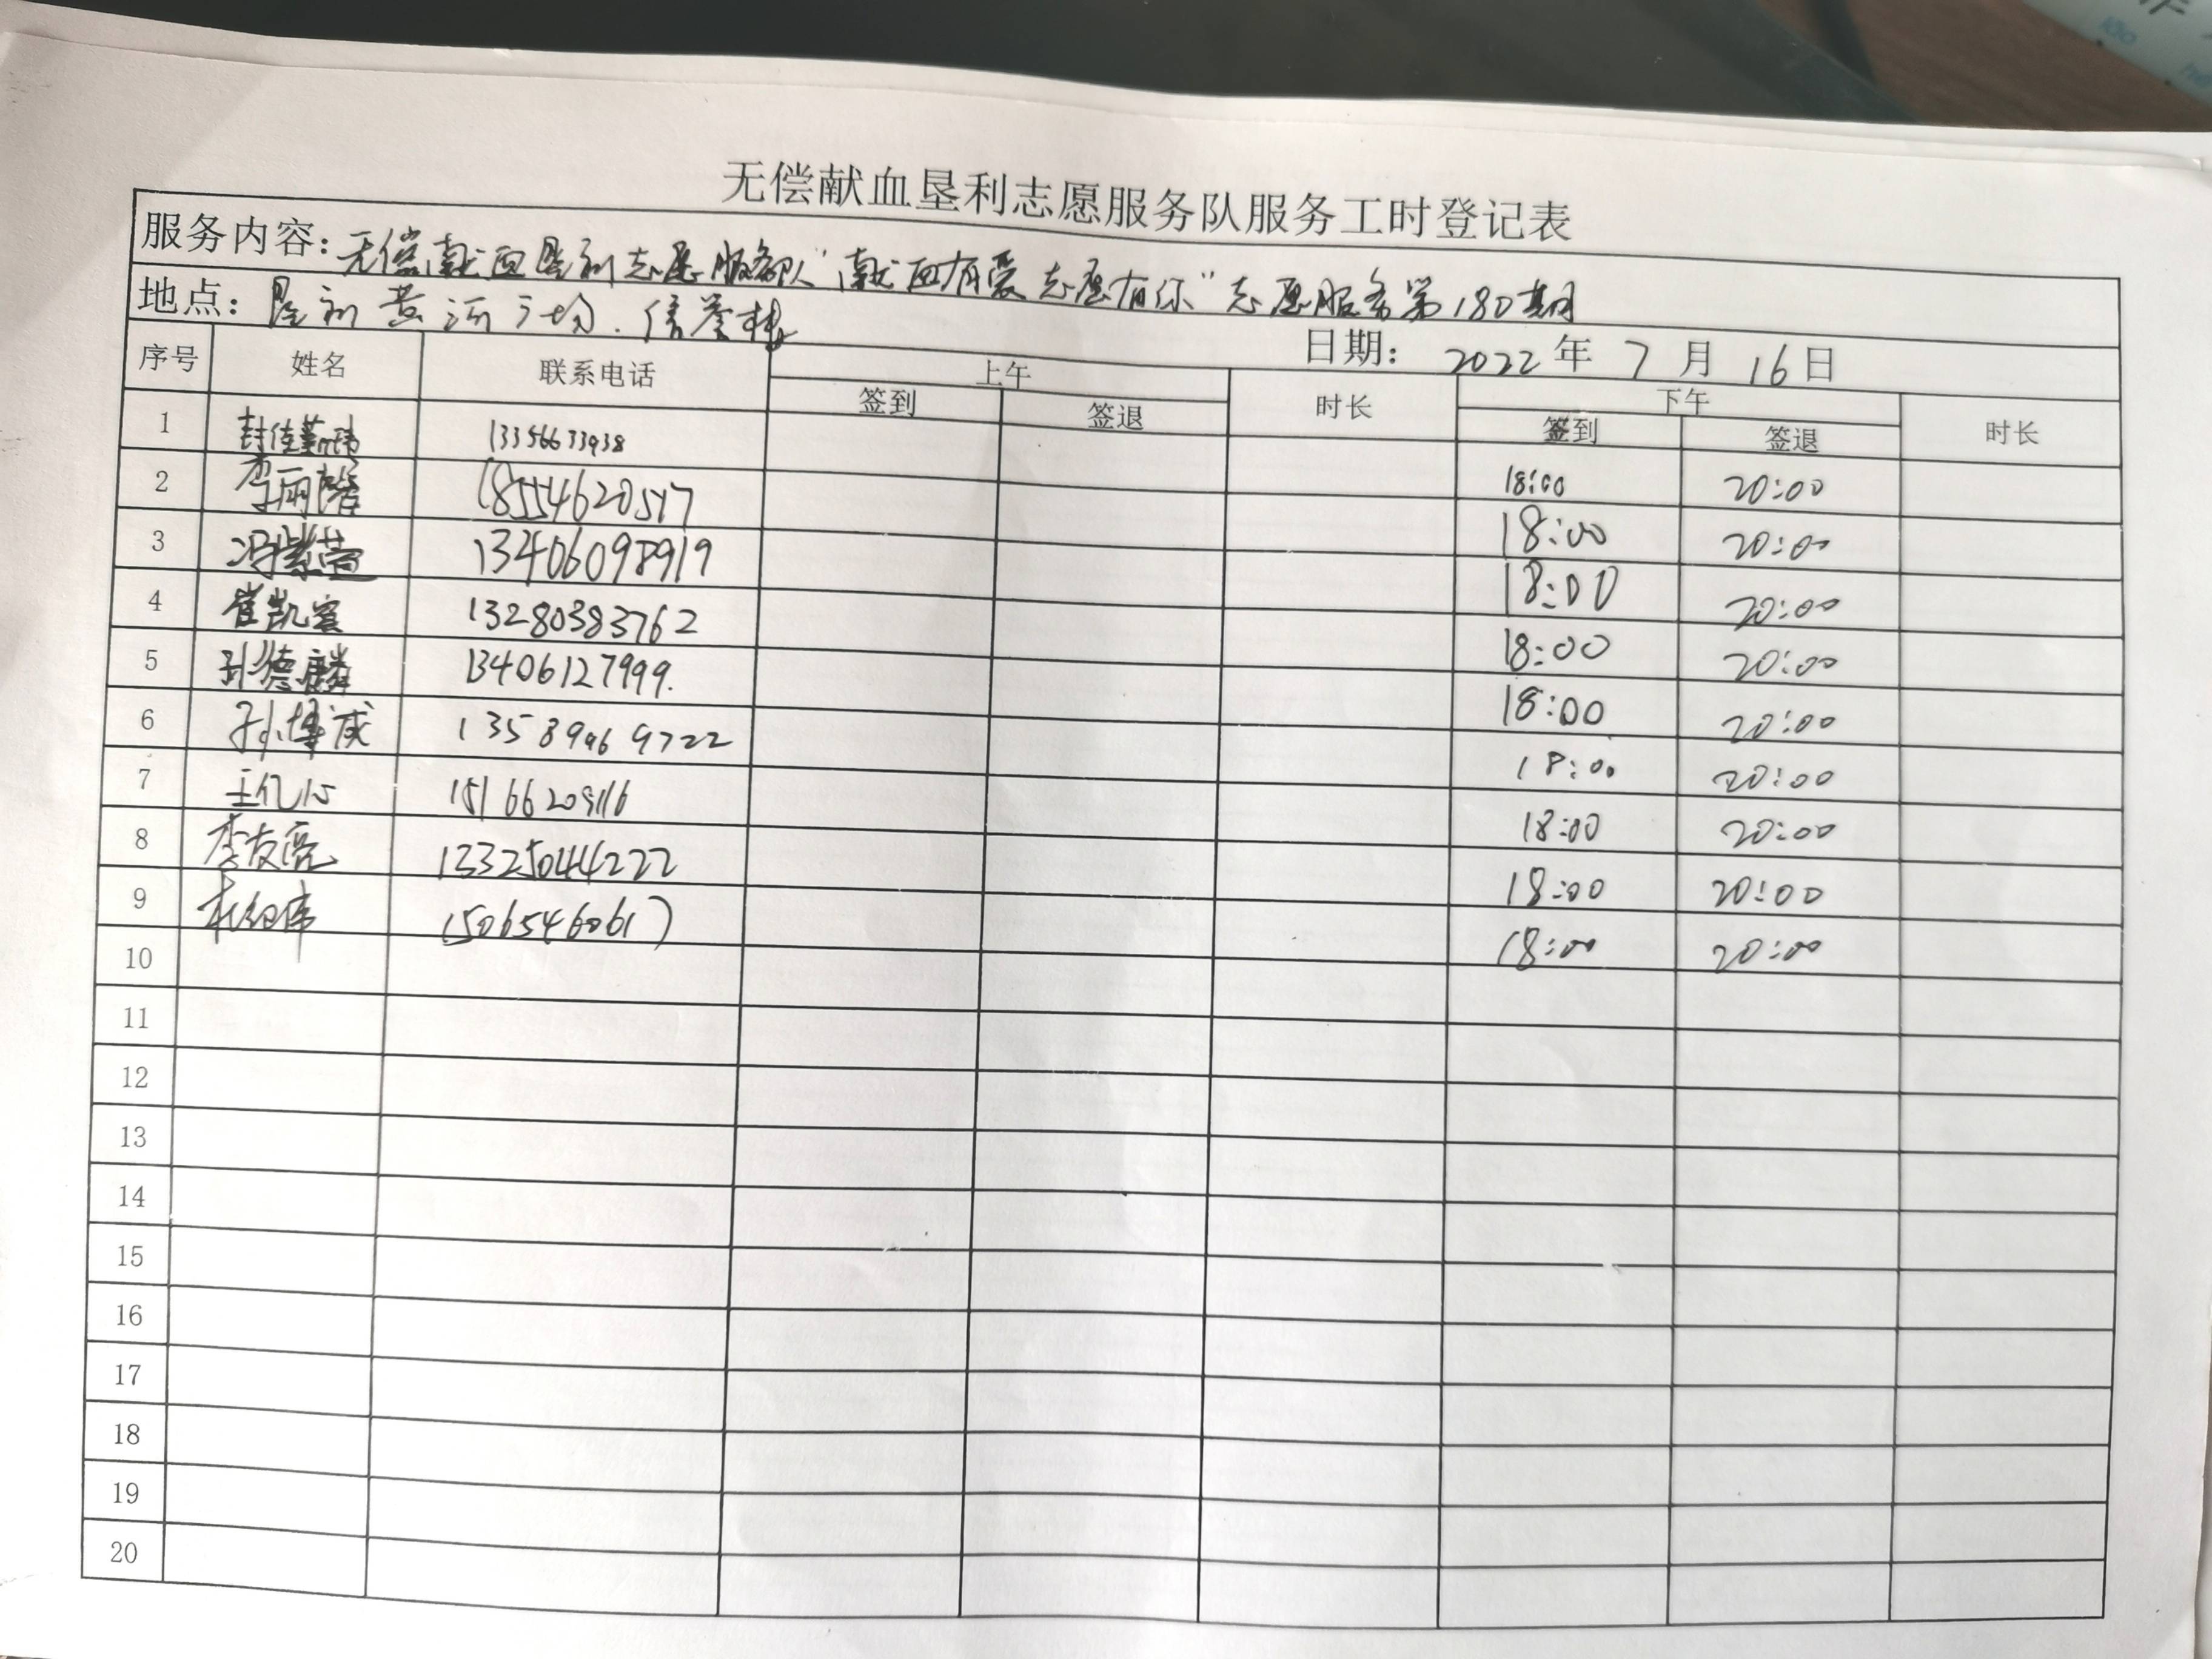 无偿献血垦利志愿服务队服务工时登记表
服务内容：无偿献血垦利志愿服务队"献血有爱 志愿有你"志愿服务第180期
地点：垦利黄河广场．信誉楼
日期： 2022 年 7 月 16 日
序号 姓名 联系电话 上午 时长 下午 时长
签到 签退 签到 签退
1 13356633938 18:00 20:00
2 李丽馨 18554620517 18:00 20:00
3 冯紫萱 13406098919 18:00 20:00
4 崔凯宾 13280383762 18:00 20:00
5 孙德麟 13406127999. 18:00 20:00
6 孙博成 13589969722 18:00 20:00
7 王亿 15166209116 18:00 20:00
8 李友亮 13325044222 18:00 20:00
9 15065460617 18:00 20:00
10
11
12
13
14
15
16
17
18
19
20